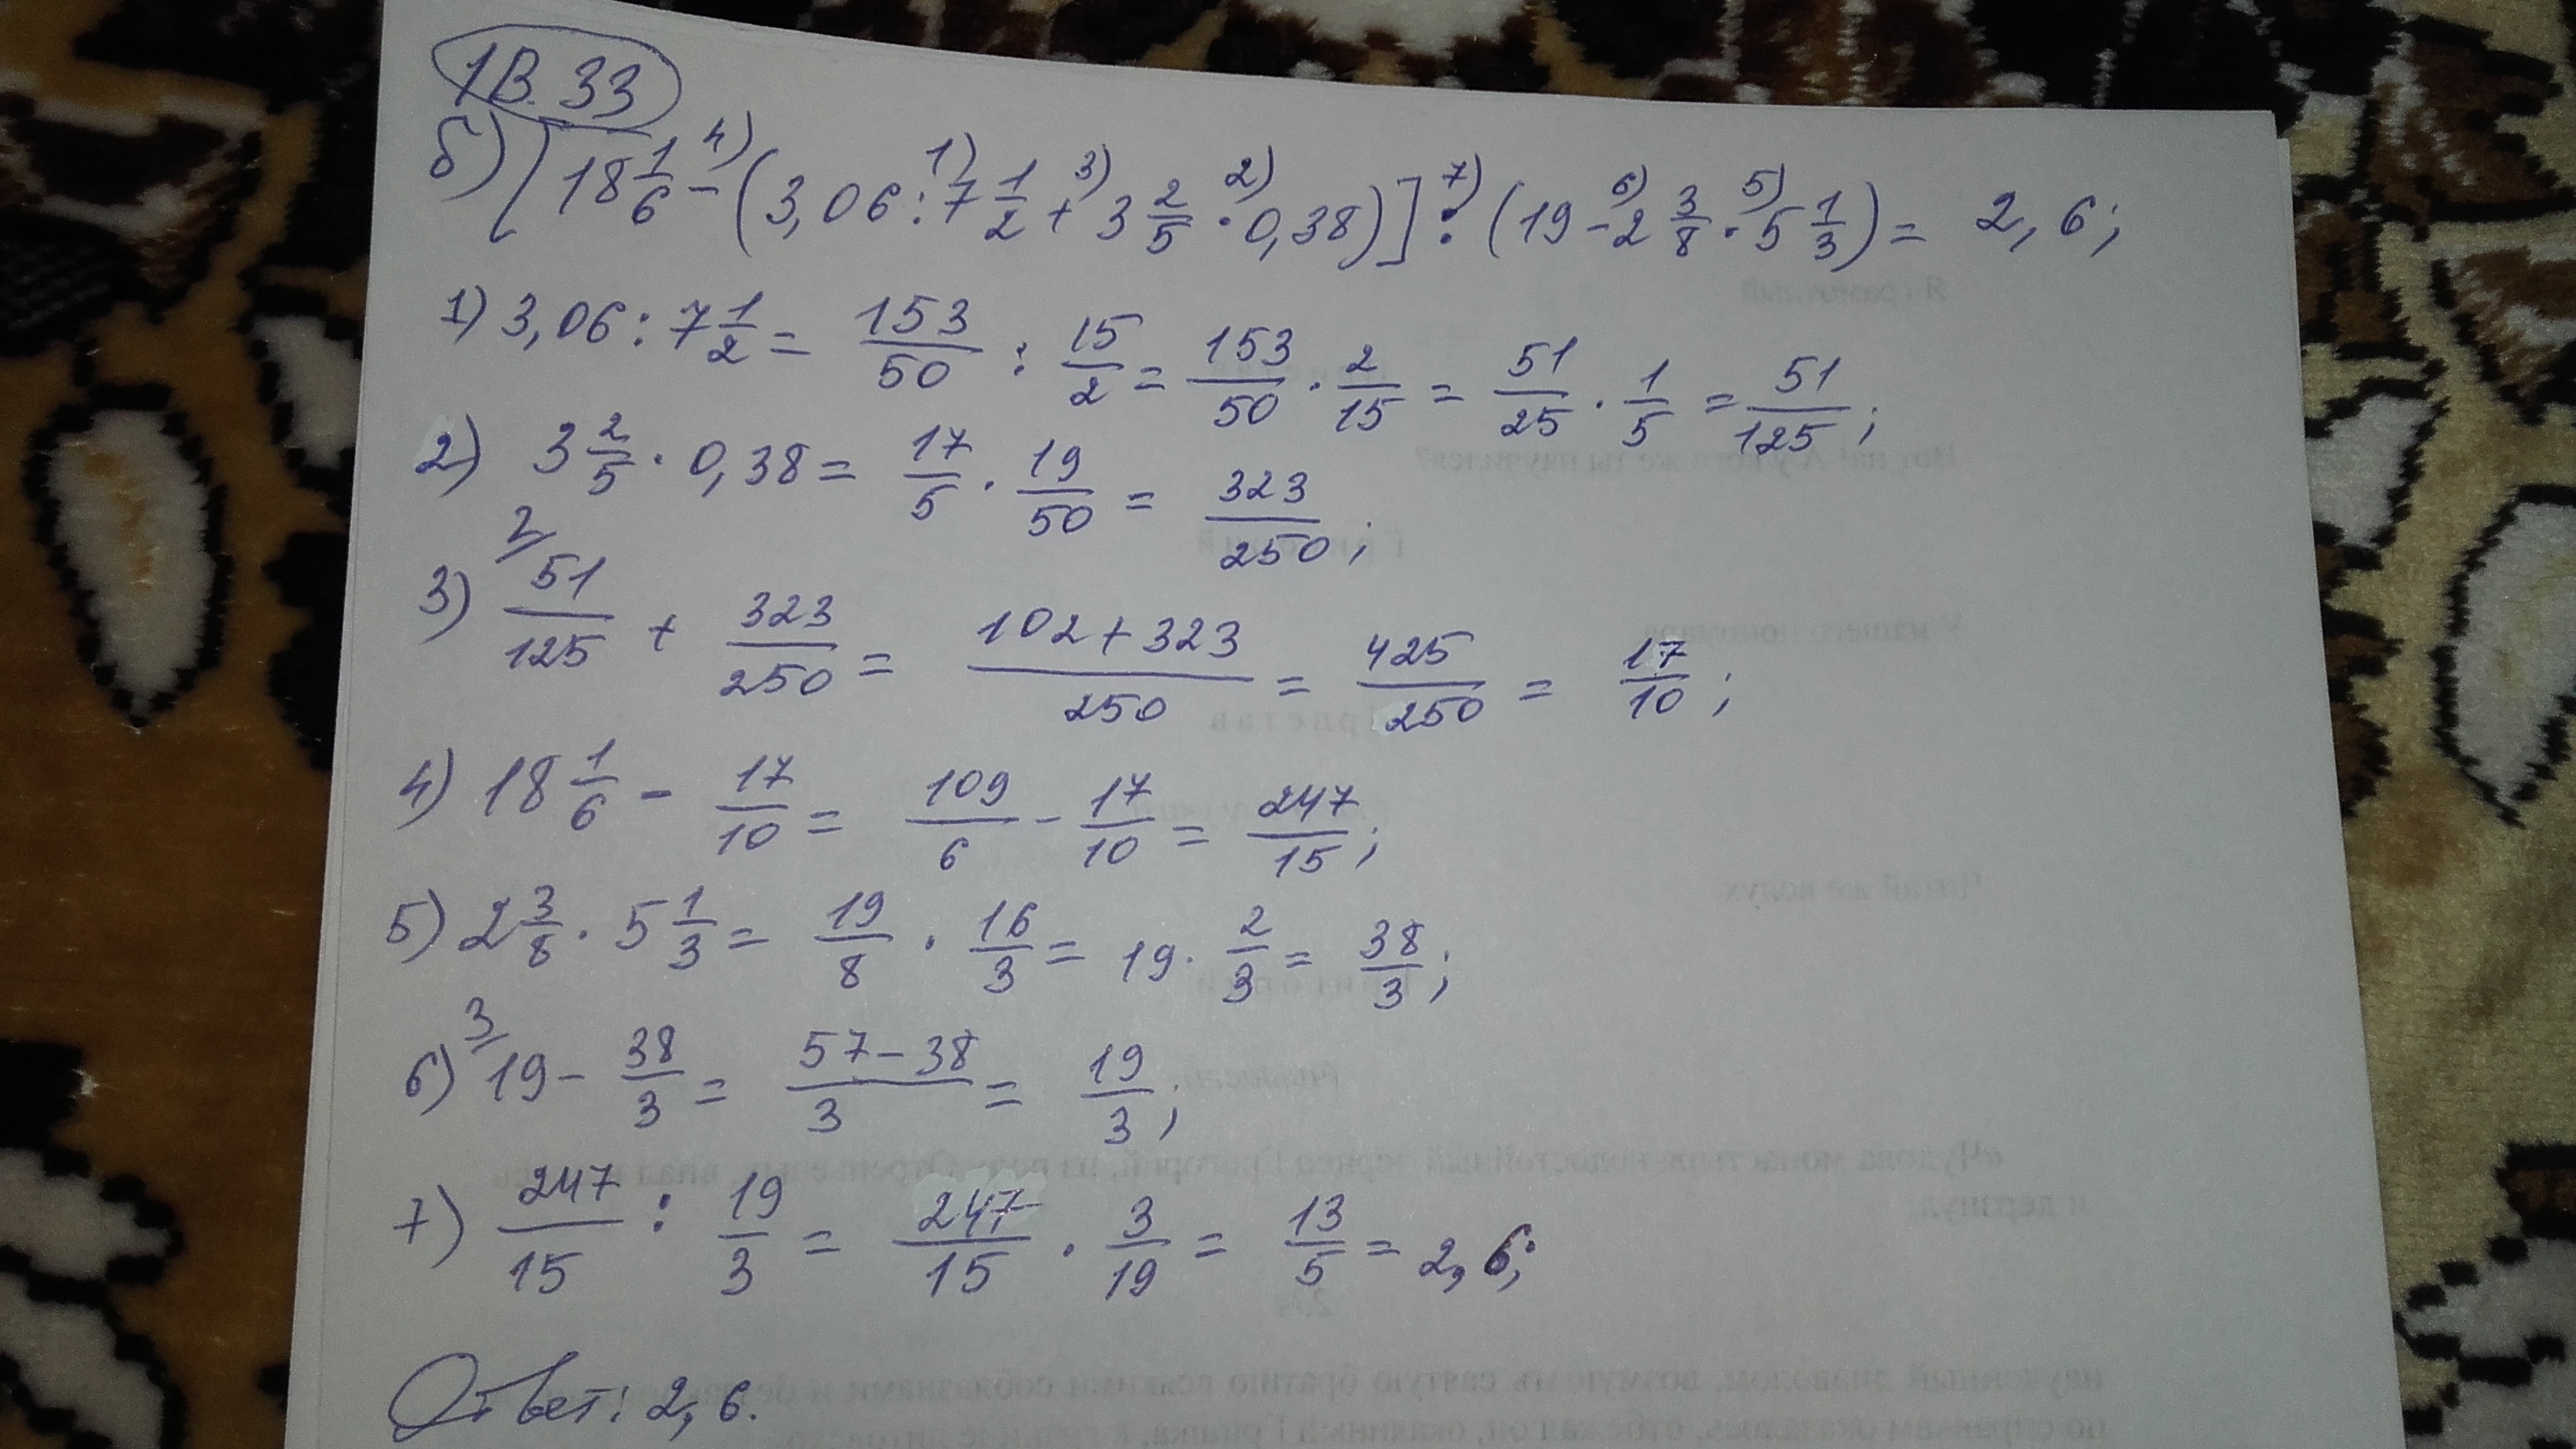 1В.33
б) [18 1/6 - (3,06 : 7 1/2 + 3 2/5 · 0,38)] : (19 - 2 3/8 · 5 1/3) = 2,6;
4) 1) 3) 2) 7) 6) 5)
1) 3,06 : 7 1/2 = 153/50 : 15/2 = 153/50 · 2/15 = 51/25 · 1/5 = 51/125;
2) 3 2/5 · 0,38 = 17/5 · 19/50 = 323/250;
3) 2/ 51/125 + 323/250 = (102+323)/250 = 425/250 = 17/10;
4) 18 1/6 - 17/10 = 109/6 - 17/10 = 247/15;
5) 2 3/8 · 5 1/3 = 19/8 · 16/3 = 19 · 2/3 = 38/3;
6) 3/ 19 - 38/3 = (57-38)/3 = 19/3;
7) 247/15 : 19/3 = 247/15 · 3/19 = 13/5 = 2,6;
Ответ: 2,6.